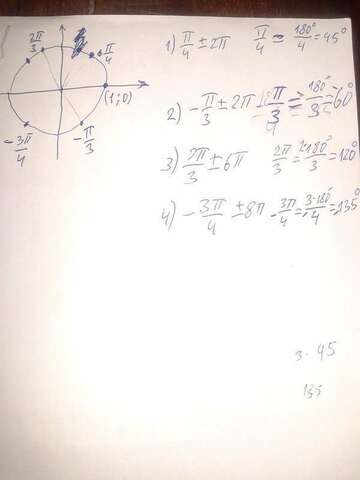 2π/3
π/4
(1;0)
-3π/4
-π/3
1) π/4 ± 2π π/4 = 180°/4 = 45°
2) -π/3 ± 2π π/3 = 180°/3 = 60°
3) 2π/3 ± 6π 2π/3 = 2·180°/3 = 120°
4) -3π/4 ± 8π -3π/4 = 3·180°/4 = 135°
3·45
135